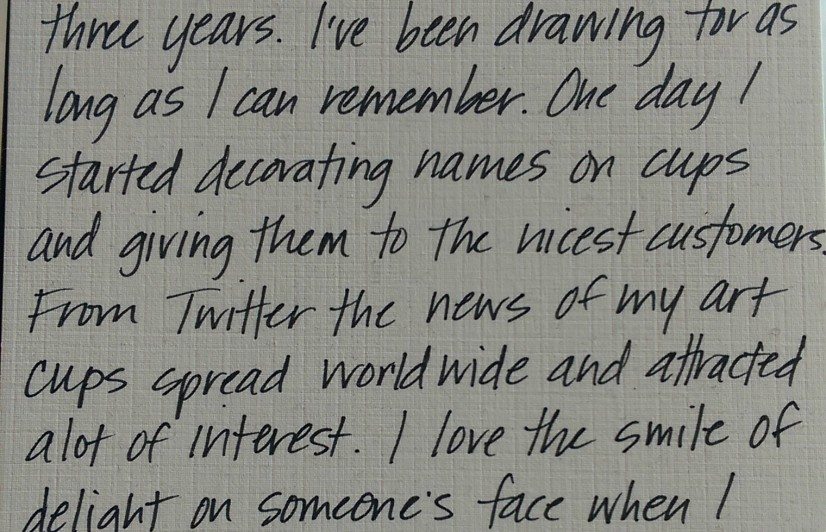 three years. I've been drawing for as
long as I can remember. One day I
started decorating names on cups
and giving them to the nicest customers.
From Twitter the news of my art
cups spread worldwide and attracted
alot of interest. I love the smile of
delight on someone's face when I